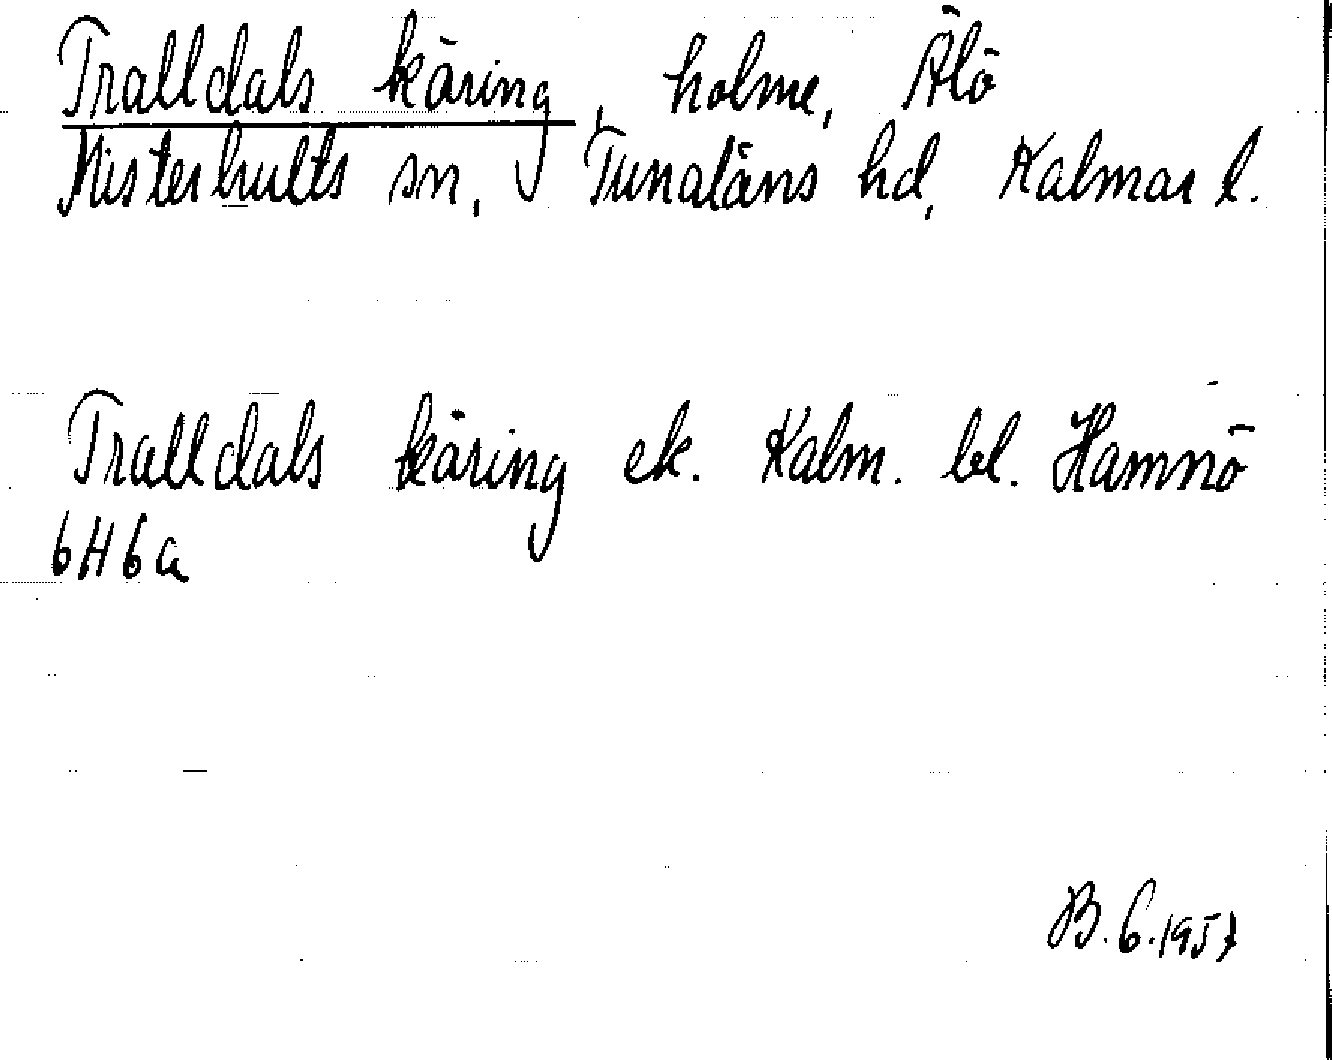 Tralldals käring, holme, Älö
Misterhults sn, Tunaläns hd, Kalmar l.
Tralldals käring ek. Kalm. bl. Hamnö
6H6a
B. G. 1957